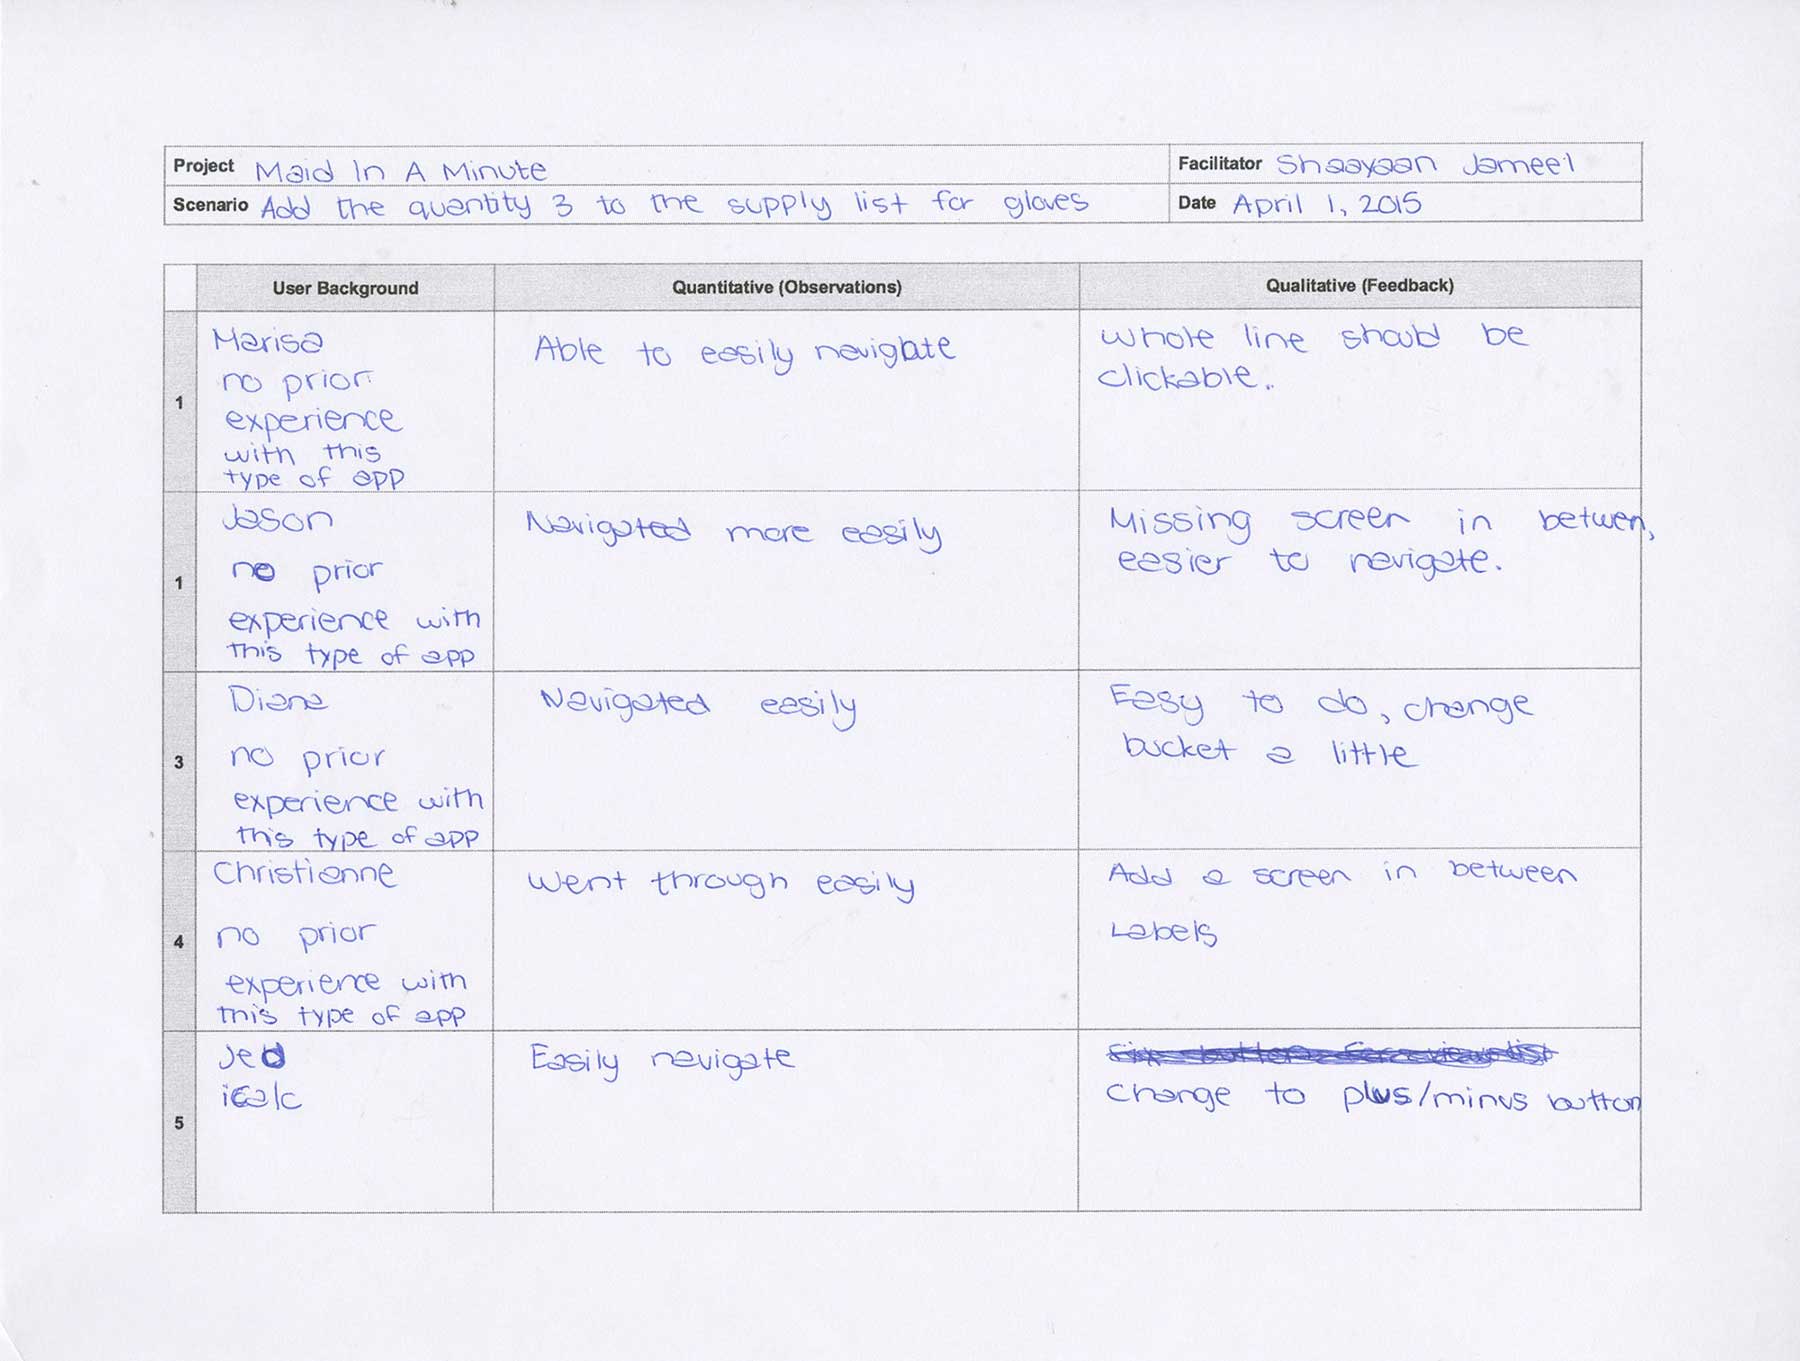 Project Maid In A Minute
Facilitator Shaayaan Jameel
Scenario Add the quantity 3 to the supply list for gloves
Date April 1, 2015
User Background
Quantitative (Observations)
Qualitative (Feedback)
1
Marisa
no prior
experience
with this
type of app
Able to easily navigate
Whole line should be
clickable.
1
Jason
no prior
experience with
this type of app
Navigated more easily
Missing screen in betwen,
easier to navigate.
3
Diana
no prior
experience with
this type of app
Navigated easily
Easy to do, change
bucket a little
4
Christianne
no prior
experience with
this type of app
Went through easily
Add a screen in between
Labels
5
Jed
iCalc
Easily navigate
Change to plus/minus button